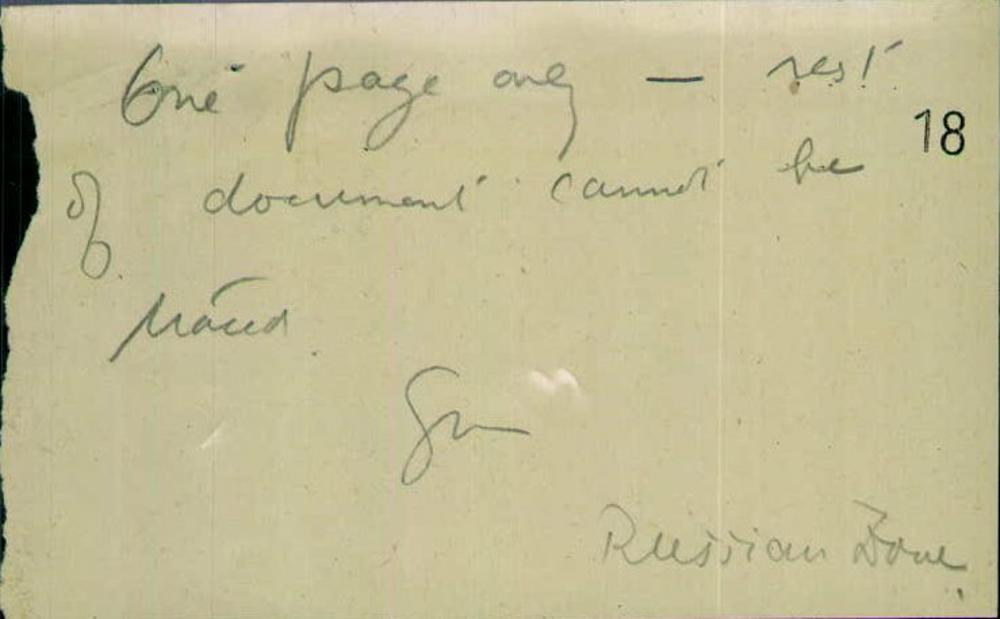 One page only — rest
18
of document cannot be
traced.
Russian Zone.